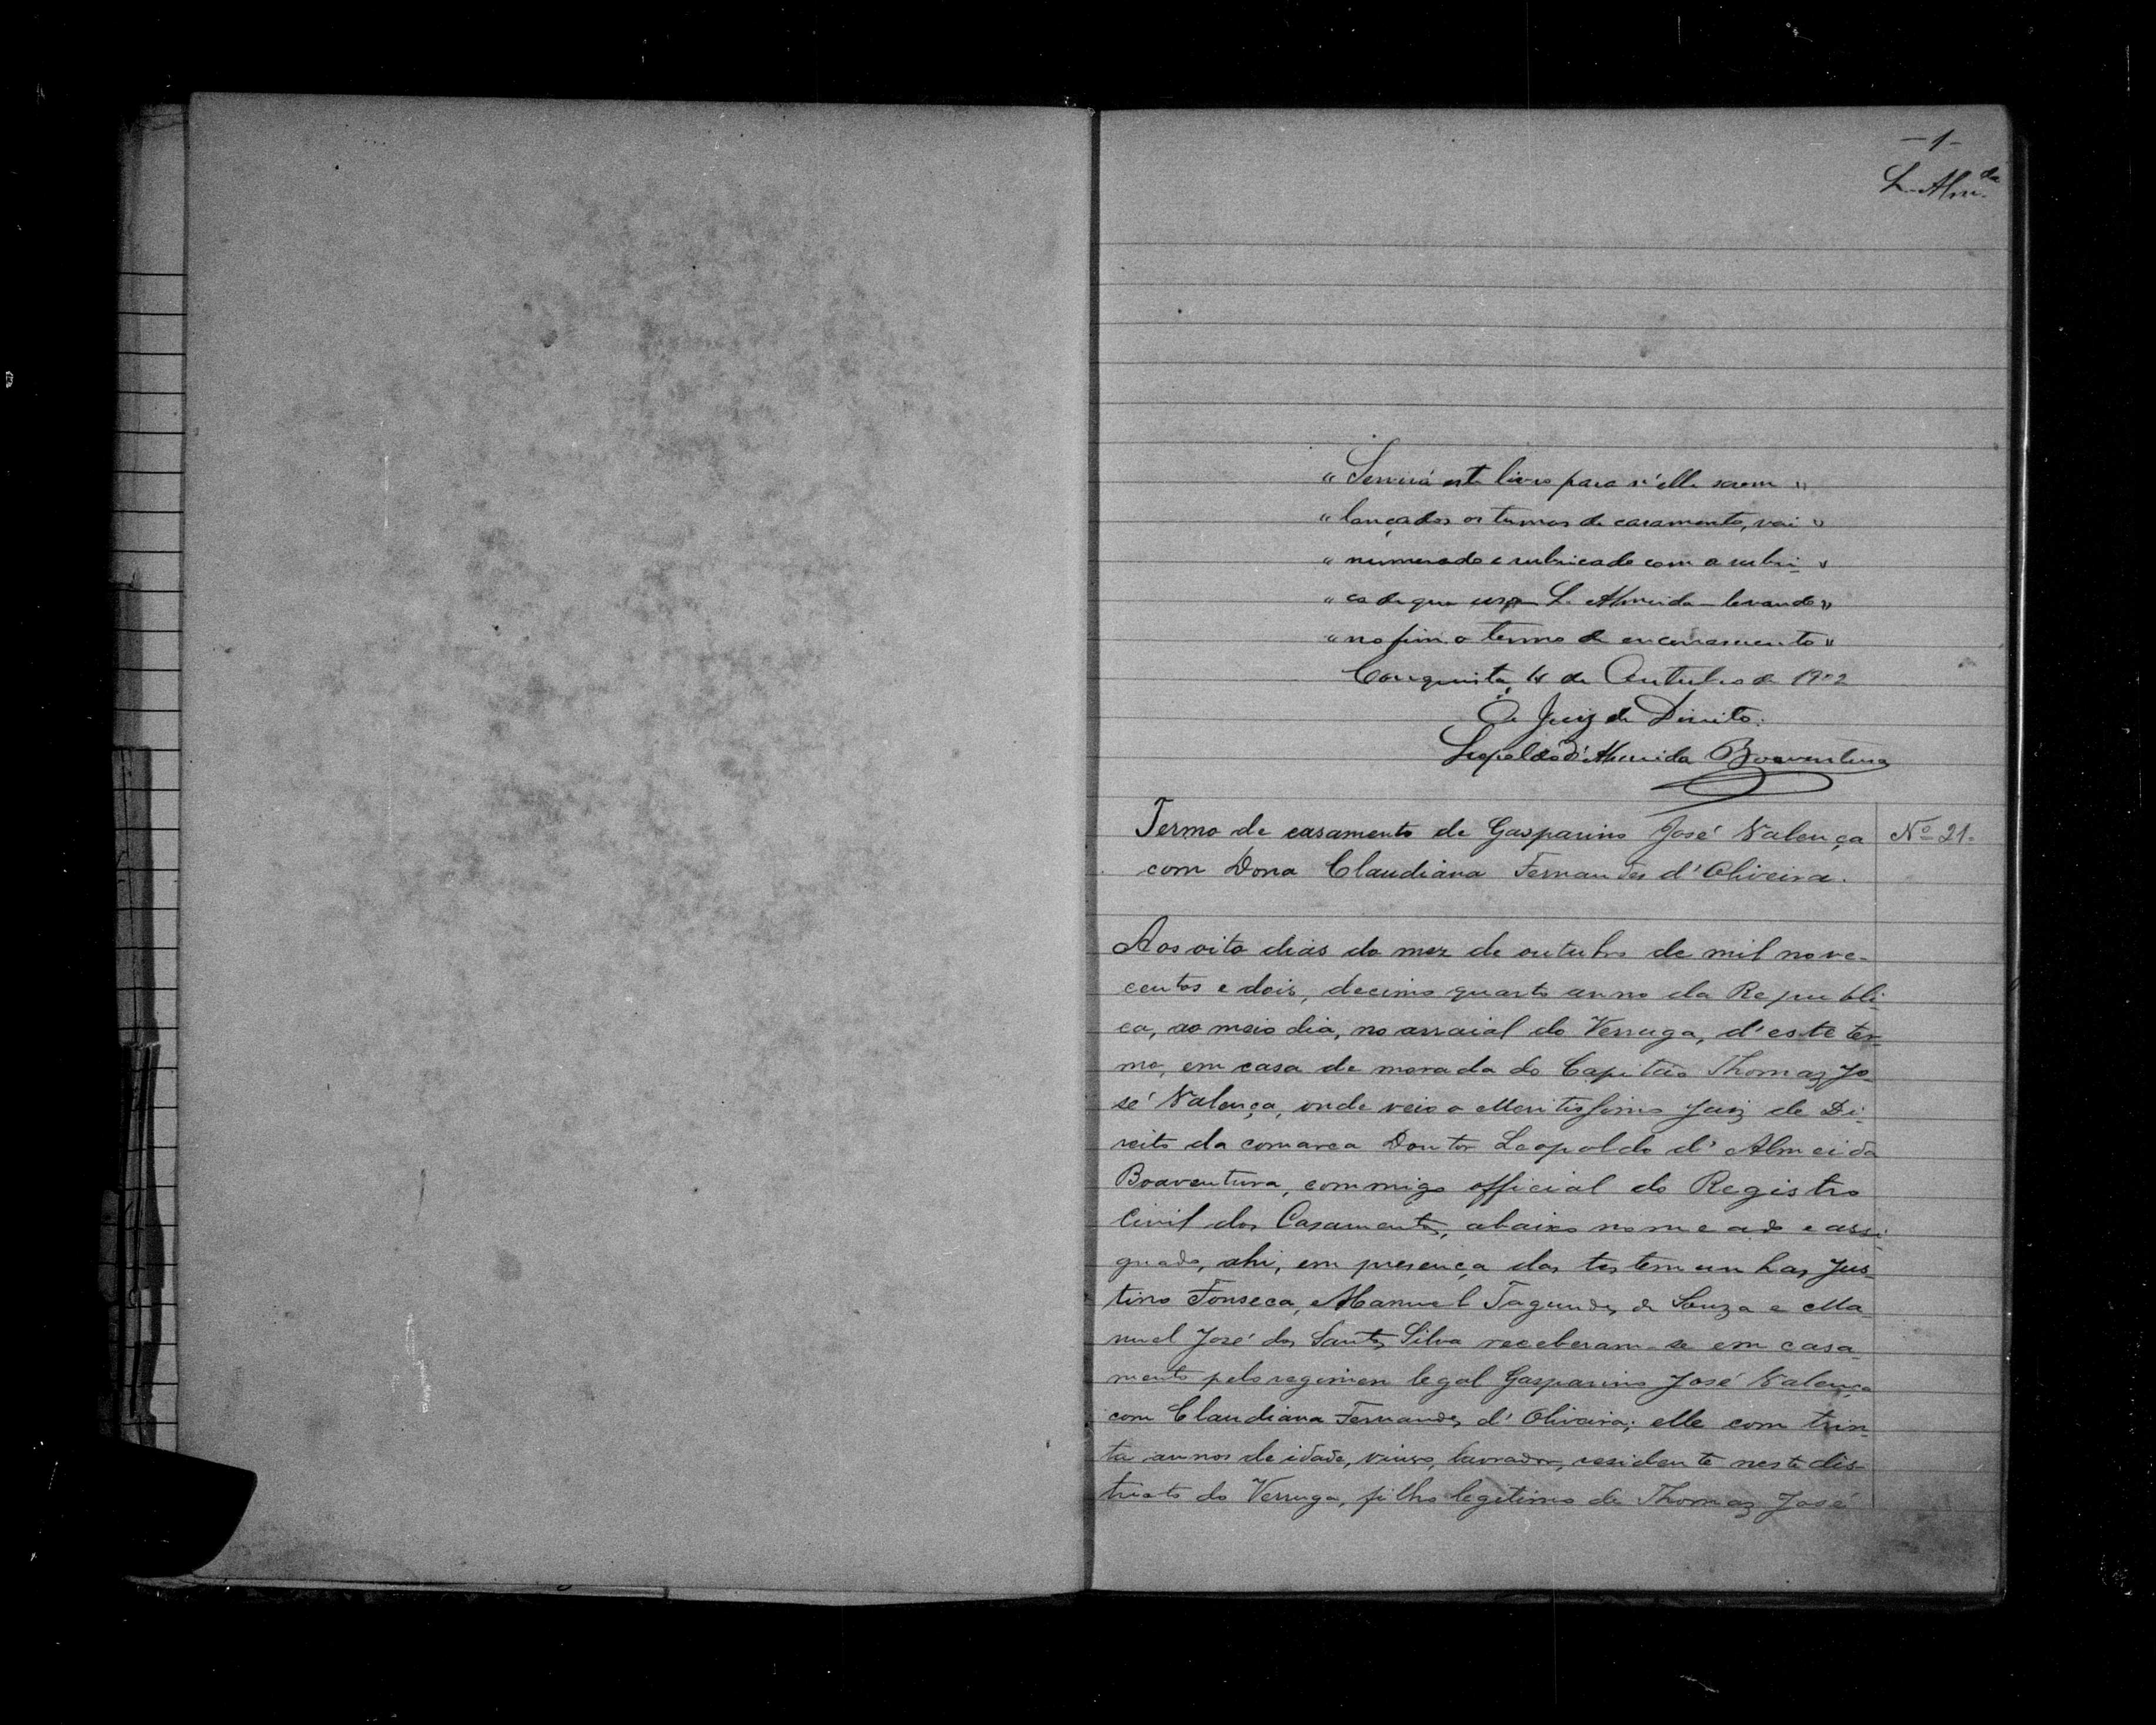 -1-
L. Alm.da
"Servirá este livro para n'elle serem"
"lançados os termos de casamento, vai"
"numerado e rubricado com a rubri-"
"ca de que uso L. Almeida - levando"
"no fim o termo de encerramento"
Conquista, de Outubro de 1902
O Juiz de Direito:
Leopoldo d'Almeida Boaventura
Termo de casamento de Gasparino José Valença
Nº 21.
com Dona Claudiana Fernandes d'Oliveira.
Aos oito dias do mez de outubro de mil nove-
centos e dois, decimo quarto anno da Republi-
ca, ao meio dia, no arraial do Verruga, d'este ter-
mo, em casa de morada do Capitão Thomaz Jo-
sé Valença, onde veio o Meritissimo Juiz de Di-
reito da comarca Doutor Leopoldo d'Almeida
Boaventura, commigo official do Registro
Civil dos Casamentos, abaixo nomeado e assi-
gnado, ahi, em presença das testemunhas Jus-
tino Fonseca, Manuel Fagundes de Souza e Ma-
nuel José dos Santos Silva receberam-se em casa-
mento pelo regimen legal Gasparino José Valença
com Claudiana Fernandes d'Oliveira; elle com trin-
ta annos de idade, viuvo, lavrador, residente neste dis-
tricto do Verruga, filho legitimo de Thomaz José